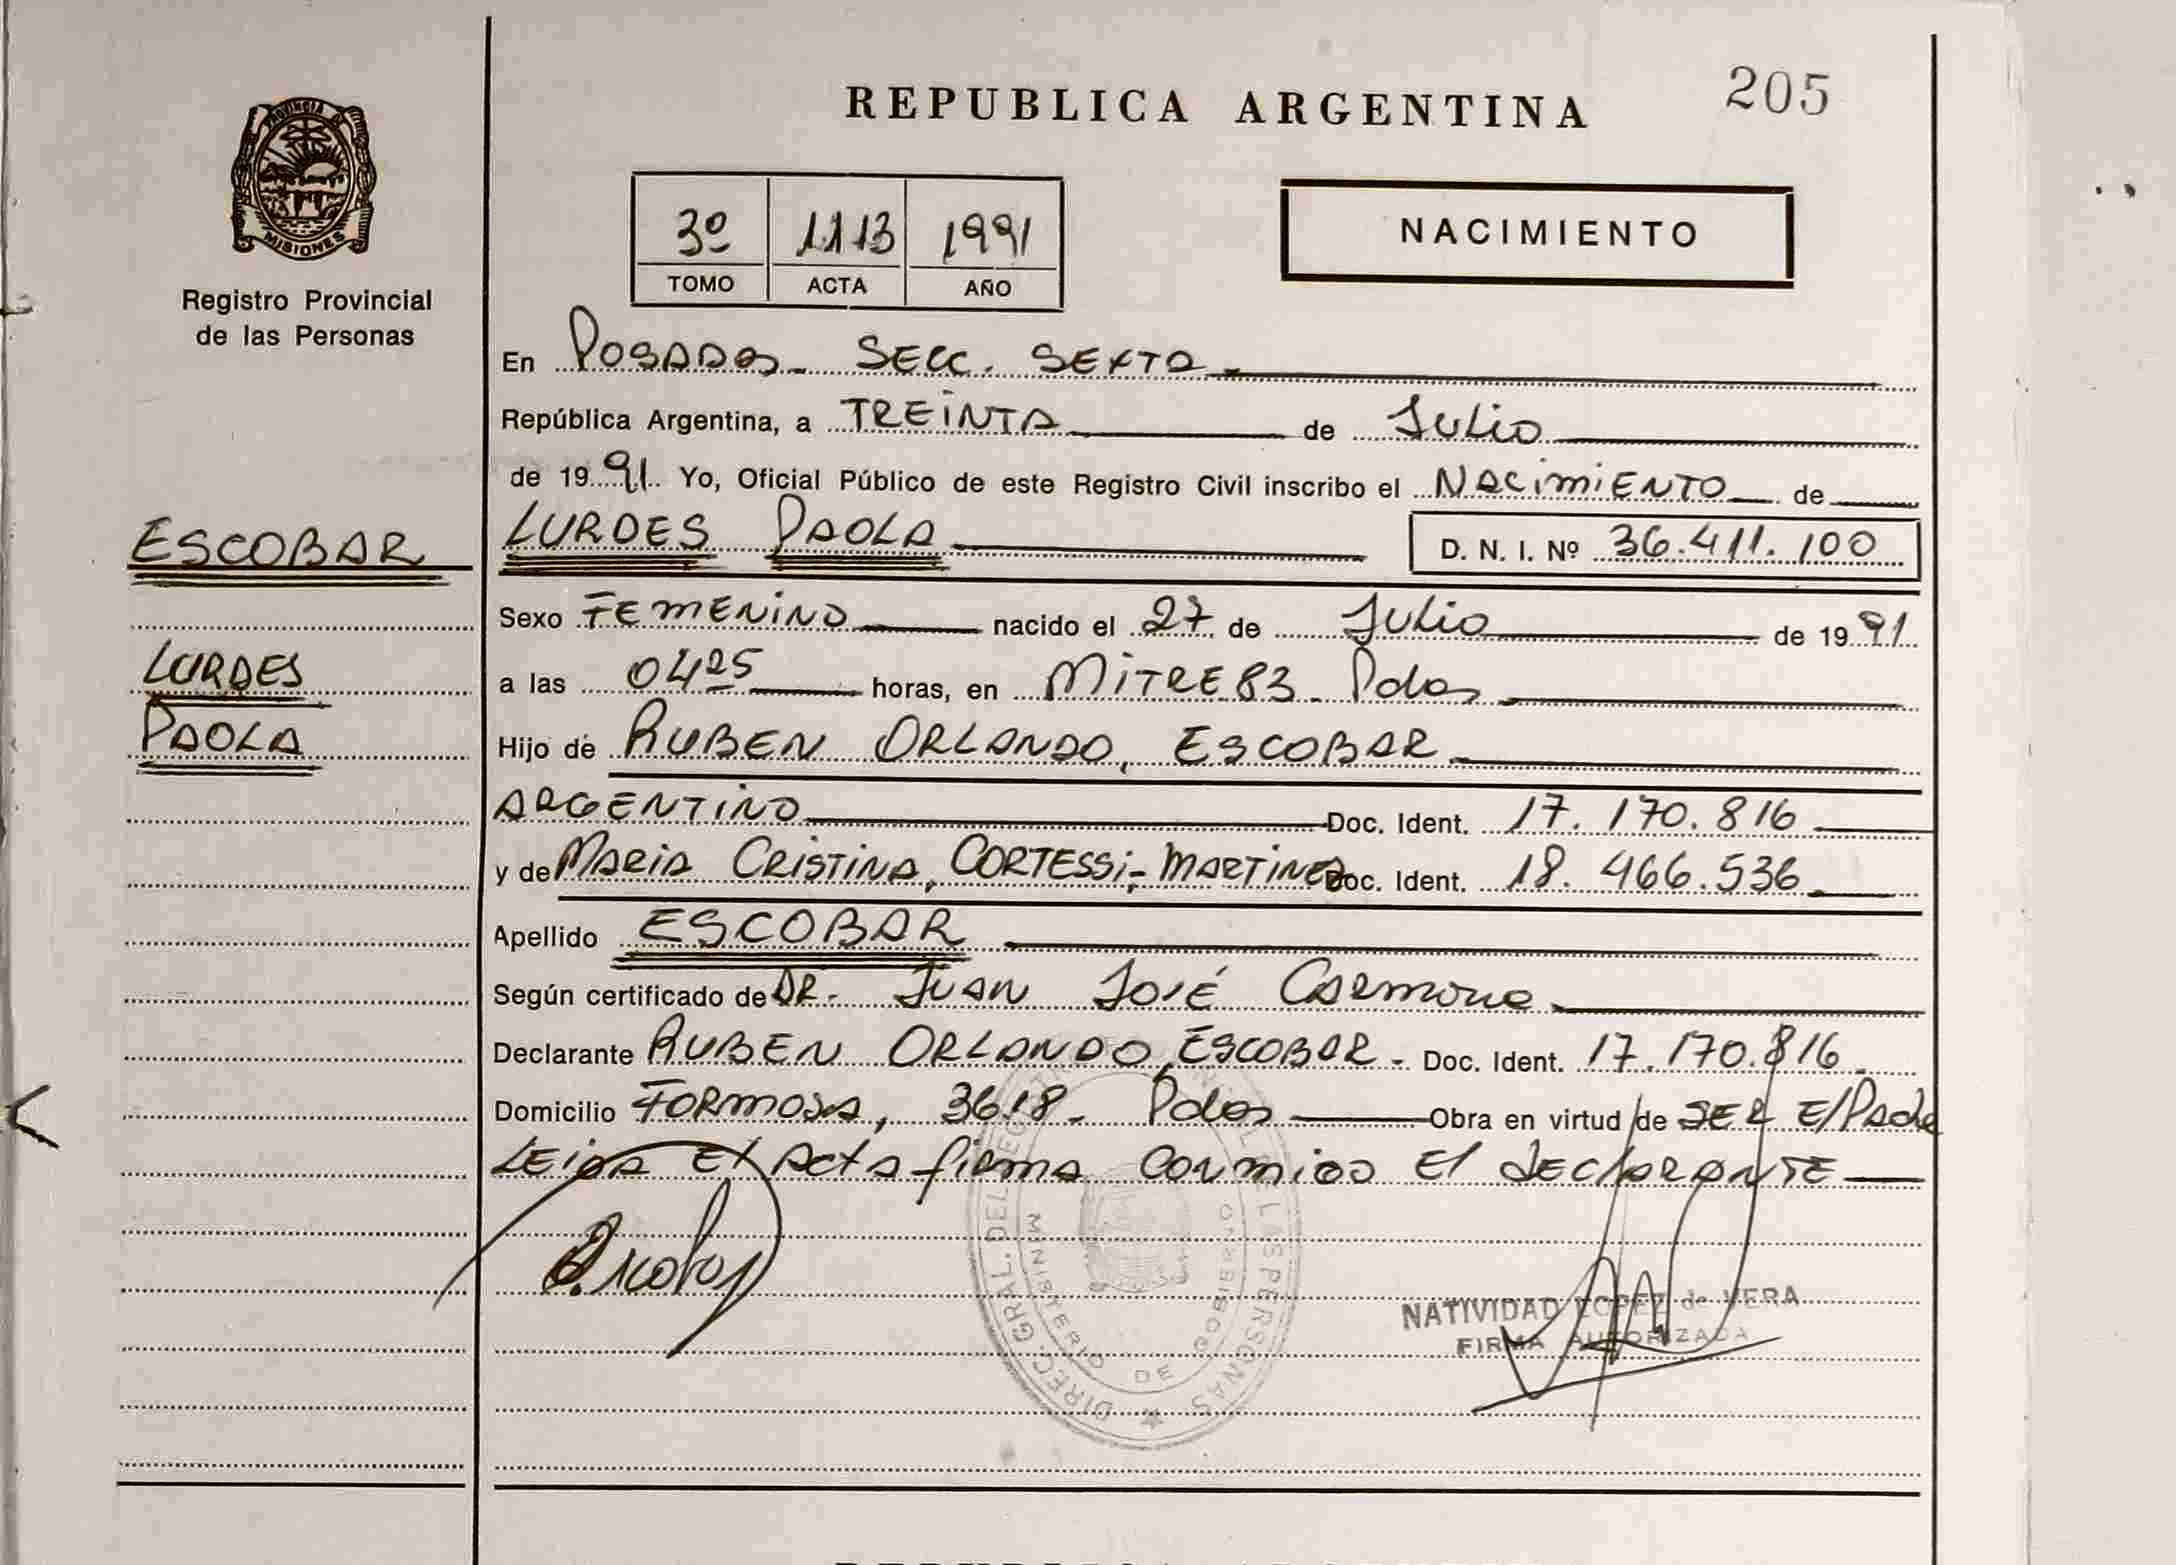 REPUBLICA ARGENTINA
205
PROVINCIA DE
MISIONES
Registro Provincial
de las Personas
3º 1113 1991
TOMO ACTA AÑO
NACIMIENTO
En Posadas - Secc. Sexta
República Argentina, a TREINTA de Julio
de 1991. Yo, Oficial Público de este Registro Civil inscribo el NACIMIENTO de
ESCOBAR
LURDES
PAOLA
LURDES PAOLA D. N. I. Nº 36.411.100
Sexo FEMENINO nacido el 27 de Julio de 1991
a las 04 25 horas, en MITRE 83 - Pdas
Hijo de RUBEN ORLANDO, ESCOBAR
ARGENTINO Doc. Ident. 17.170.816
y de MARIA CRISTINA, CORTESSI - MARTINEZ Doc. Ident. 18.466.536
Apellido ESCOBAR
Según certificado de DR. JUAN JOSÉ CARMONA
Declarante RUBEN ORLANDO, ESCOBAR - Doc. Ident. 17.170.816
Domicilio FORMOSA, 3618 - Pdas Obra en virtud de SER E/Padre
LEIDA El Acta firma conmigo El DEclarante
DIREC. GRAL. DEL REGISTRO PROVINCIAL DE LAS PERSONAS
MINISTERIO DE GOBIERNO
NATIVIDAD LOPEZ de VERA
FIRMA AUTORIZADA